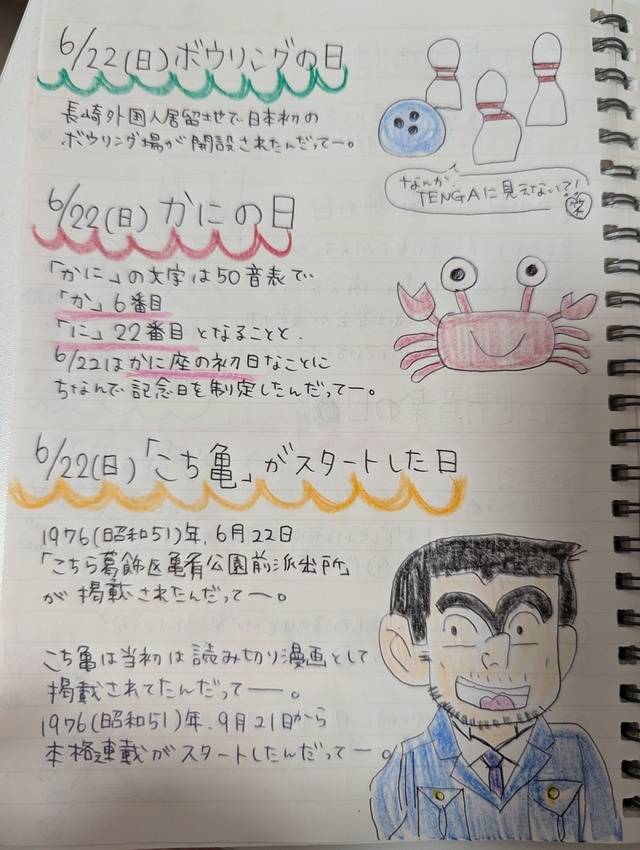 6/22(日)ボウリングの日
長崎外国人居留地で、日本初の
ボウリング場が開設されたんだってー。
なんか、
TENGAに見えないで!
笑
6/22(日)かにの日
「かに」の文字は50音表で
「か」6番目
「に」22番目となることと、
6/22はかに座の初日なことに
ちなんで記念日を制定したんだってー。
6/22(日)「こち亀」がスタートした日
1976(昭和51)年、6月22日
「こちら葛飾区亀有公園前派出所」
が掲載されたんだってー。
こち亀は当初は読み切り漫画として
掲載されてたんだってー。
1976(昭和51)年、9月21日から
本格連載がスタートしたんだってー。